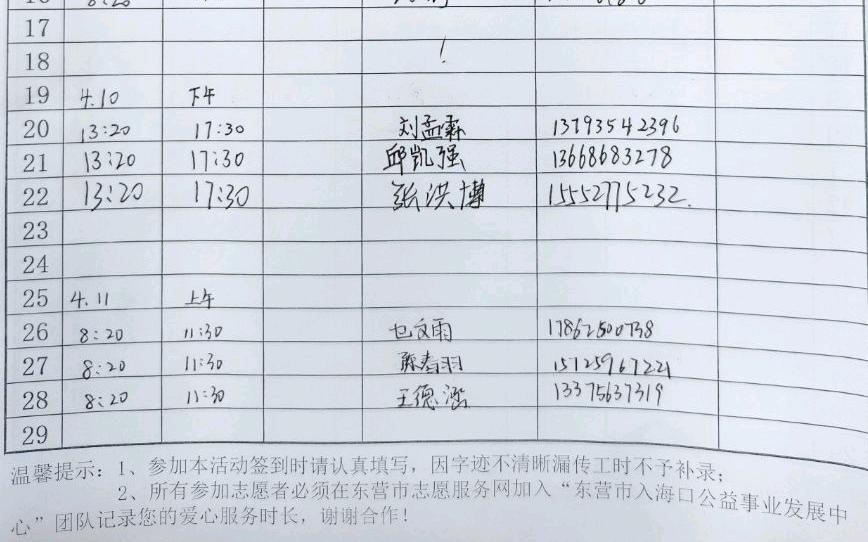 17
18
19 4.10 下午
20 13:20 17:30 刘孟霖 13793542396
21 13:20 17:30 邱凯强 13668683278
22 13:20 17:30 张洪博 15552775232.
23
24
25 4.11 上午
26 8:20 11:30 文雨 17862500738
27 8:20 11:30 15725967221
28 8:20 11:30 王德涵 13375637319
29
温馨提示：1、参加本活动签到时请认真填写，因字迹不清晰漏传工时不予补录；
2、所有参加志愿者必须在东营市志愿服务网加入“东营市入海口公益事业发展中
心”团队记录您的爱心服务时长，谢谢合作！